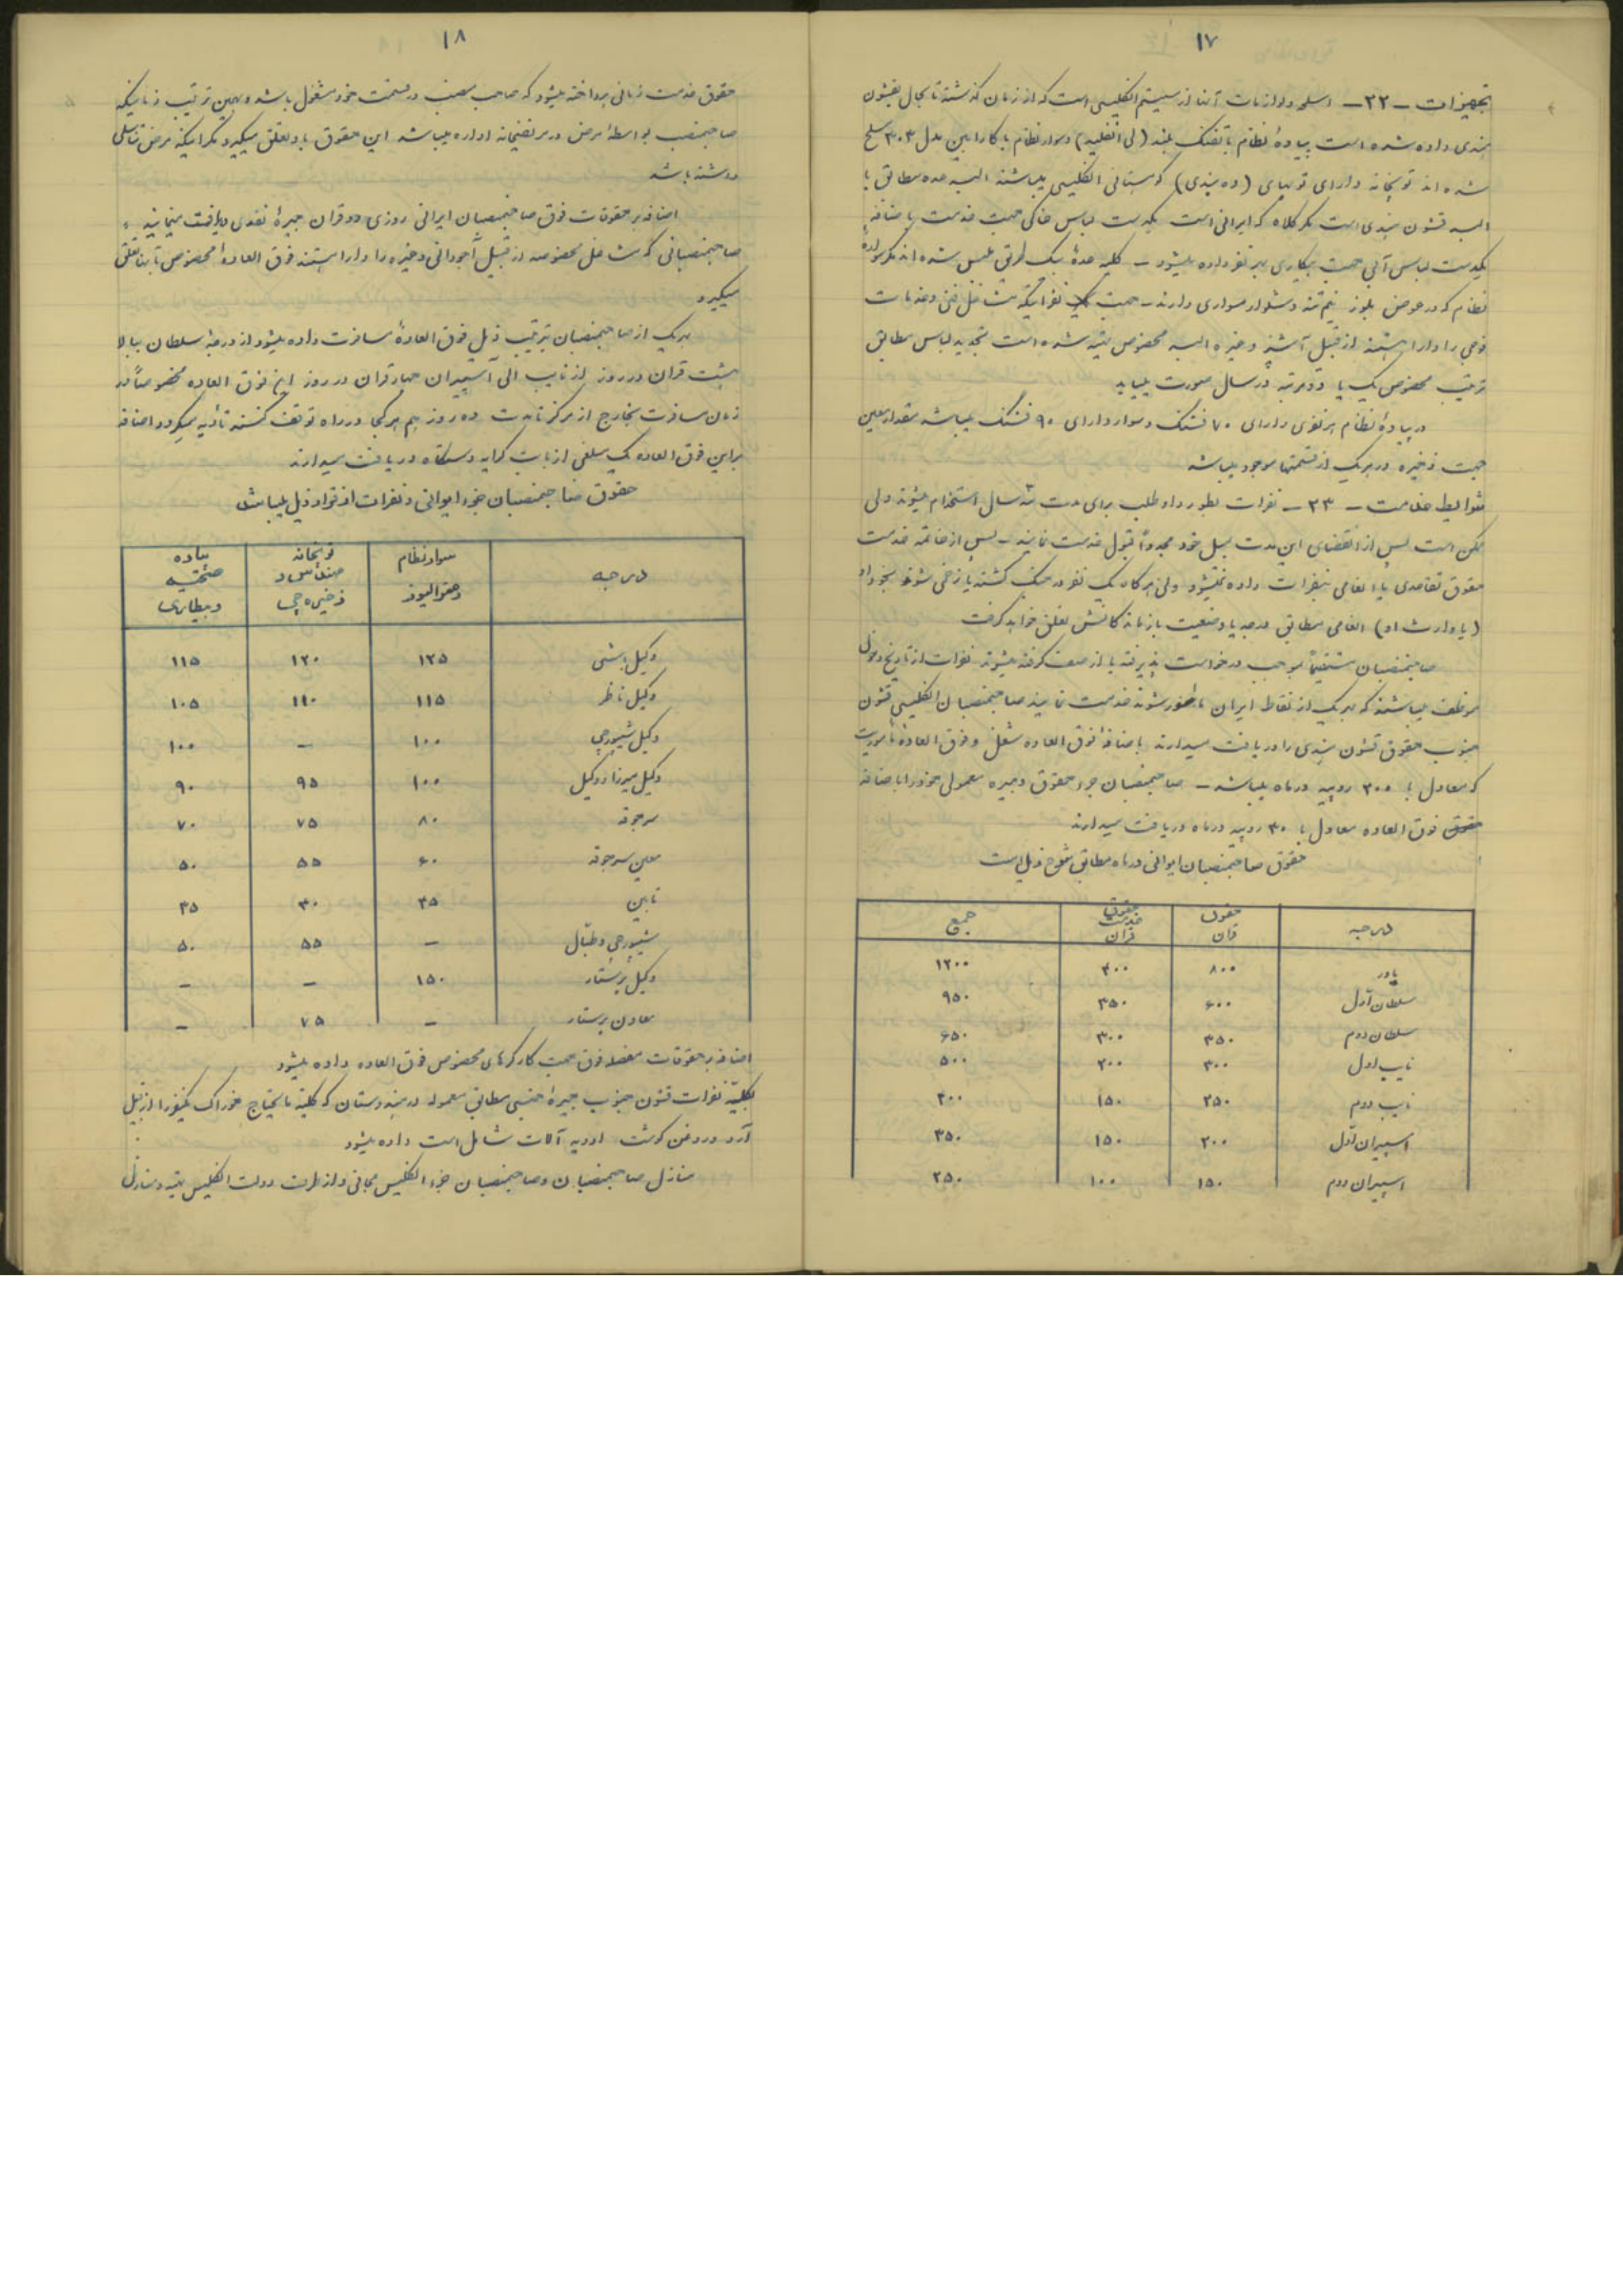 ۱۷
تجهیزات – ۲۲ – اسلحه و لوازمات آنها از سیستم انگلیسی است که از زمان گذشته تا بحال بقشون
هندی داده شده است پیاده نظام با تفنگ بلند (لی انفلید) و سوار نظام با کارابین مدل ۳۰۳ مسلح
شده اند توپخانه دارای توپهای (ده پوندی) کوهستانی انگلیسی میباشند البسه عده مطابق با
البسه قشون هندی است مگر کلاه که ایرانی است یکدست لباس خاکی جهت خدمت باضافه
یکدست لباس آبی جهت بیکاری بهر نفر داده میشود – کلیه عده بیک طریق ملبس شده اند مگر سواره
نظام که در عوض بلوز نیم تنه و شلوار سواری دارند – جهت نفراتیکه مشاغل فنی و خدمات
فوجی را دارا هستند از قبیل آشپز و غیره البسه مخصوص تهیه شده است تجدید لباس مطابق
ترتیب مخصوص یک یا دو مرتبه در سال صورت مییابد
در پیاده نظام هر نفری دارای ۷۰ فشنگ و سوار دارای ۹۰ فشنگ میباشد مقدار معین
جهت ذخیره در هر یک از قسمتها موجود میباشد
شوایط خدمت – ۲۳ – نفرات بطور داوطلب برای مدت سه سال استخدام میشوند ولی
ممکن است پس از انقضای این مدت بمیل خود مجدداً قبول خدمت نمایند – پس از خاتمه خدمت
حقوق تقاعدی یا انعامی بنفرات داده نمیشود ولی هرگاه یک نفر در جنگ کشته یا زخمی شود بخود او
(یا وارث او) انعامی مطابق درجه یا وضعیت بازماندگانش تعلق خواهد گرفت
صاحبمنصبان مستقیماً بموجب درخواست پذیرفته یا از صف گرفته میشوند نفرات از تاریخ دخول
موظف میباشند که در هر یک از نقاط ایران مأمور شوند خدمت نمایند صاحبمنصبان انگلیسی قشون
جنوب حقوق قشون هندی را دریافت میدارند باضافه فوق العاده شغل و فوق العاده مأموریت
که معادل با ۲۰۰ روپیه در ماه میباشد – صاحبمنصبان جزء حقوق و جیره معمولی خود را باضافه
فوق العاده معادل با ۳۰ روپیه در ماه دریافت میدارند
حقوق صاحبمنصبان ایرانی در ماه مطابق شرح ذیل است
درجه حقوق قران حقوق خدمت قران جمع
یاور ۸۰۰ ۴۰۰ ۱۲۰۰
سلطان اول ۶۰۰ ۳۵۰ ۹۵۰
سلطان دوم ۳۵۰ ۳۰۰ ۶۵۰
نایب اول ۳۰۰ ۲۰۰ ۵۰۰
نایب دوم ۲۵۰ ۱۵۰ ۴۰۰
اسپیران اول ۲۰۰ ۱۵۰ ۳۵۰
اسپیران دوم ۱۵۰ ۱۰۰ ۲۵۰
۱۸
حقوق خدمت زمانی پرداخته میشود که صاحب منصب در قسمت خود مشغول باشد و بهمین ترتیب زمانیکه
صاحبمنصب بواسطه مرض در مریضخانه اداره میباشد این حقوق باو تعلق میگیرد مگر اینکه مرض تناسلی
داشته باشد
اضافه بر حقوقات فوق صاحبمنصبان ایرانی روزی دو قران جیره نقدی دریافت مینمایند
صاحبمنصبانی که مشاغل مخصوصه از قبیل آجودانی و غیره را دارا هستند فوق العاده مخصوص بآنها تعلق
میگیرد
بهر یک از صاحبمنصبان بترتیب ذیل فوق العاده مسافرت داده میشود از درجه سلطان ببالا
هشت قران در روز از نایب الی اسپیران چهار قران در روز این فوق العاده مخصوصاً در
زمان مسافرت بخارج از مرکز تا مدت ده روز هم هر کجا در راه توقف کنند تأدیه میگردد اضافه
بر این فوق العاده یک مبلغی از بابت کرایه دستگاه دریافت میدارند
حقوق صاحبمنصبان جزء ایرانی و نفرات از قرار ذیل میباشد
درجه سوار نظام توپخانه مهندس و ذخیره چی پیاده صحیه و بیطاری
وکیل باشی ۱۲۵ ۱۲۰ ۱۱۵
وکیل ناظر ۱۱۵ ۱۱۰ ۱۰۵
وکیل شیپورچی ۱۰۰ – ۱۰۰
وکیل میرزا و وکیل ۱۰۰ ۹۵ ۹۰
سرجوقه ۸۰ ۷۵ ۷۰
معین سرجوقه ۶۰ ۵۵ ۵۰
تابین ۴۵ ۴۰ ۳۵
شیپورچی و طبال – ۵۵ ۵۰
وکیل پرستار ۱۵۰ – –
معاون پرستار – ۷۵ –
اضافه بر حقوقات مفصله فوق جهت کارگرهای مخصوص فوق العاده داده میشود
بکلیه نفرات قشون جنوب جیره جنسی مطابق معموله در هندوستان که کلیه مایحتاج خوراک یکنفر را از قبیل
آرد و روغن گوشت ادویه آلات شامل است داده میشود
منازل صاحبمنصبان و صاحبمنصبان جزء انگلیسی مجانی و از طرف دولت انگلیس تهیه و منازل